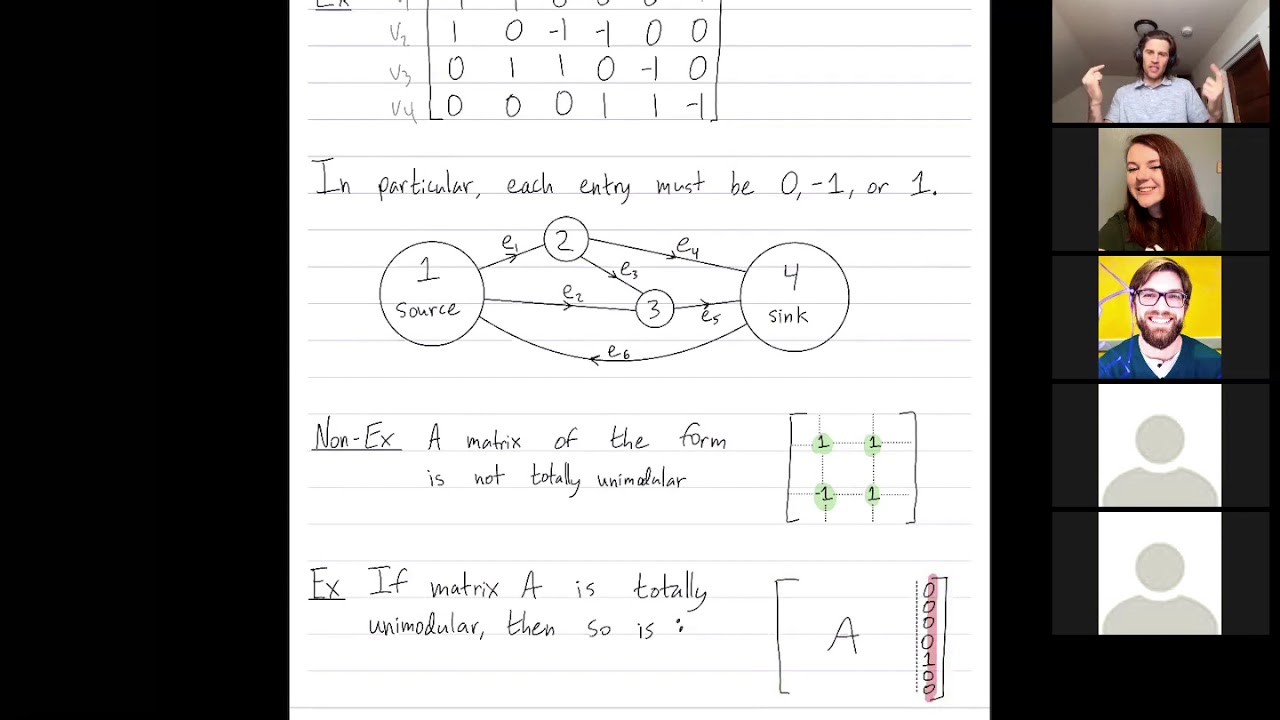 Ex
v2 1 0 -1 -1 0 0
v3 0 1 1 0 -1 0
v4 0 0 0 1 1 -1
In particular, each entry must be 0, -1, or 1.
1
source
e1
2
e4
e3
e2
3
e5
4
sink
e6
Non-Ex A matrix of the form
is not totally unimodular
1 1
-1 1
Ex If matrix A is totally
unimodular, then so is :
A
0
0
0
0
1
0
0